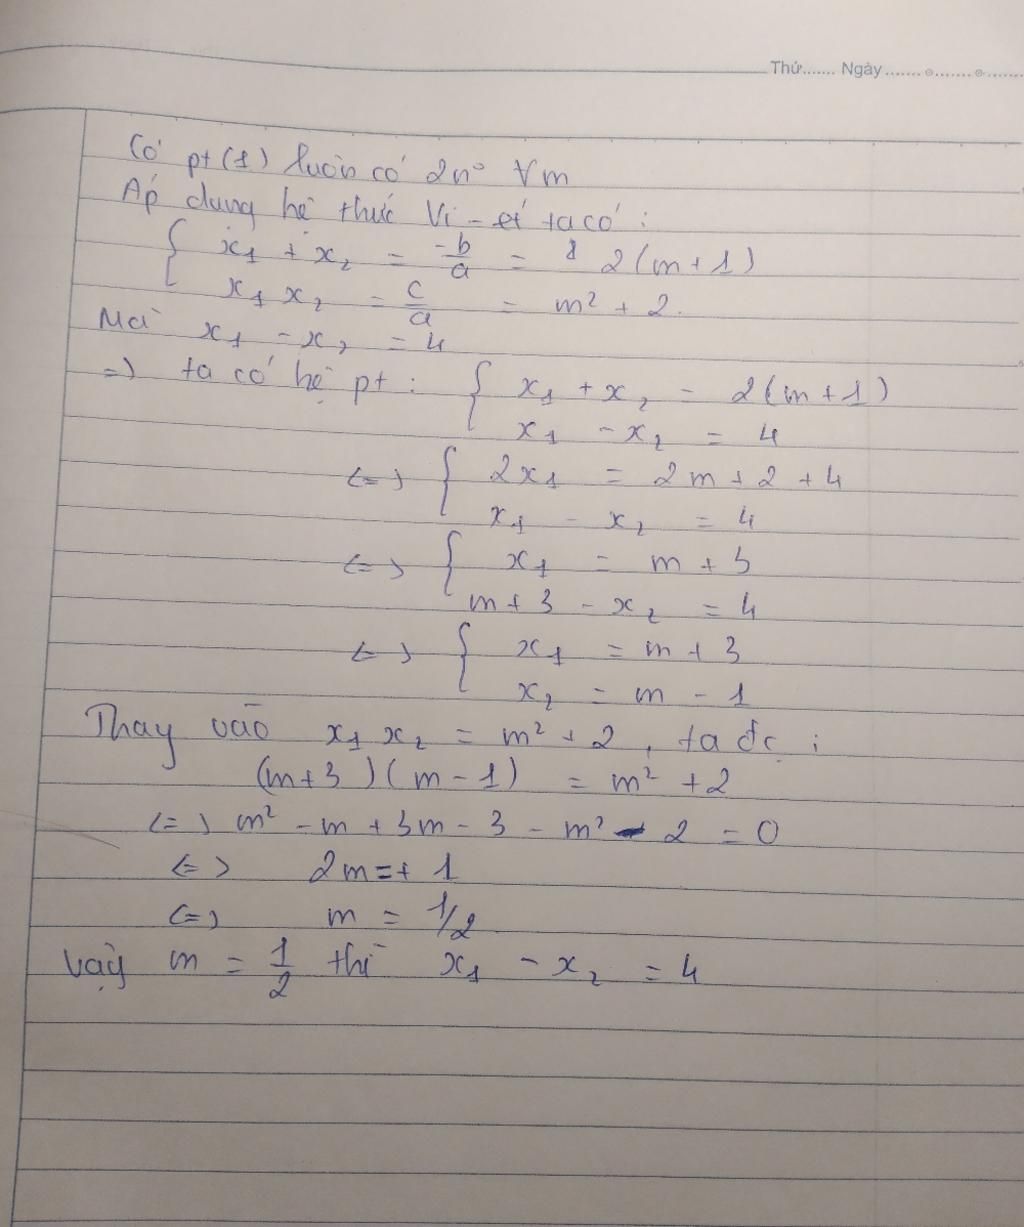 Thứ....... Ngày.......................
Có pt (1) luôn có 2n° ∀m
Áp dụng hệ thức Vi-ét ta có :
{ x₁ + x₂ = -b/a = 2(m+1)
x₁ x₂ = c/a = m² + 2.
Mà x₁ - x₂ = 4
=> ta có hệ pt : { x₁ + x₂ = 2(m+1)
x₁ - x₂ = 4
<=> { 2x₁ = 2m + 2 + 4
x₁ - x₂ = 4
<=> { x₁ = m + 3
m + 3 - x₂ = 4
<=> { x₁ = m + 3
x₂ = m - 1
Thay vào x₁ x₂ = m² + 2, ta đc :
(m+3)(m-1) = m² + 2
<=> m² - m + 3m - 3 - m² - 2 = 0
<=> 2m = + 1
<=> m = 1/2
Vậy m = 1/2 thì x₁ - x₂ = 4